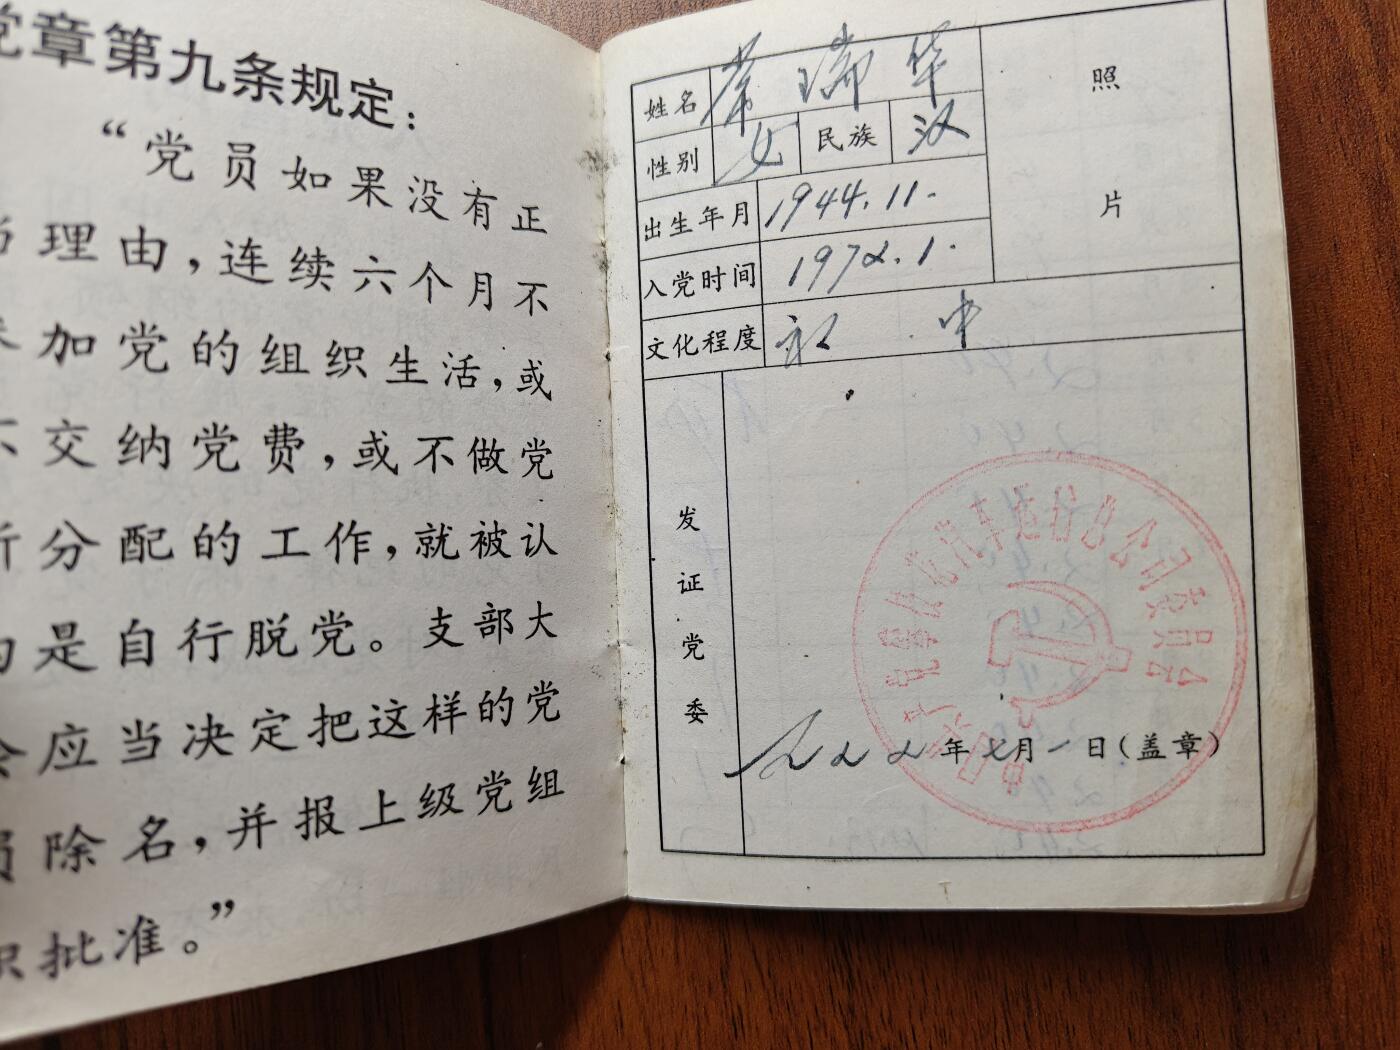 党章第九条规定：
“党员如果没有正
当理由，连续六个月不
参加党的组织生活，或
不交纳党费，或不做党
所分配的工作，就被认
为是自行脱党。支部大
会应当决定把这样的党
员除名，并报上级党组
织批准。”
姓名 常瑞华
性别 女 民族 汉
出生年月 1944.11.
入党时间 1972.1.
文化程度 初中
照片
发证党委
年七月一日(盖章)